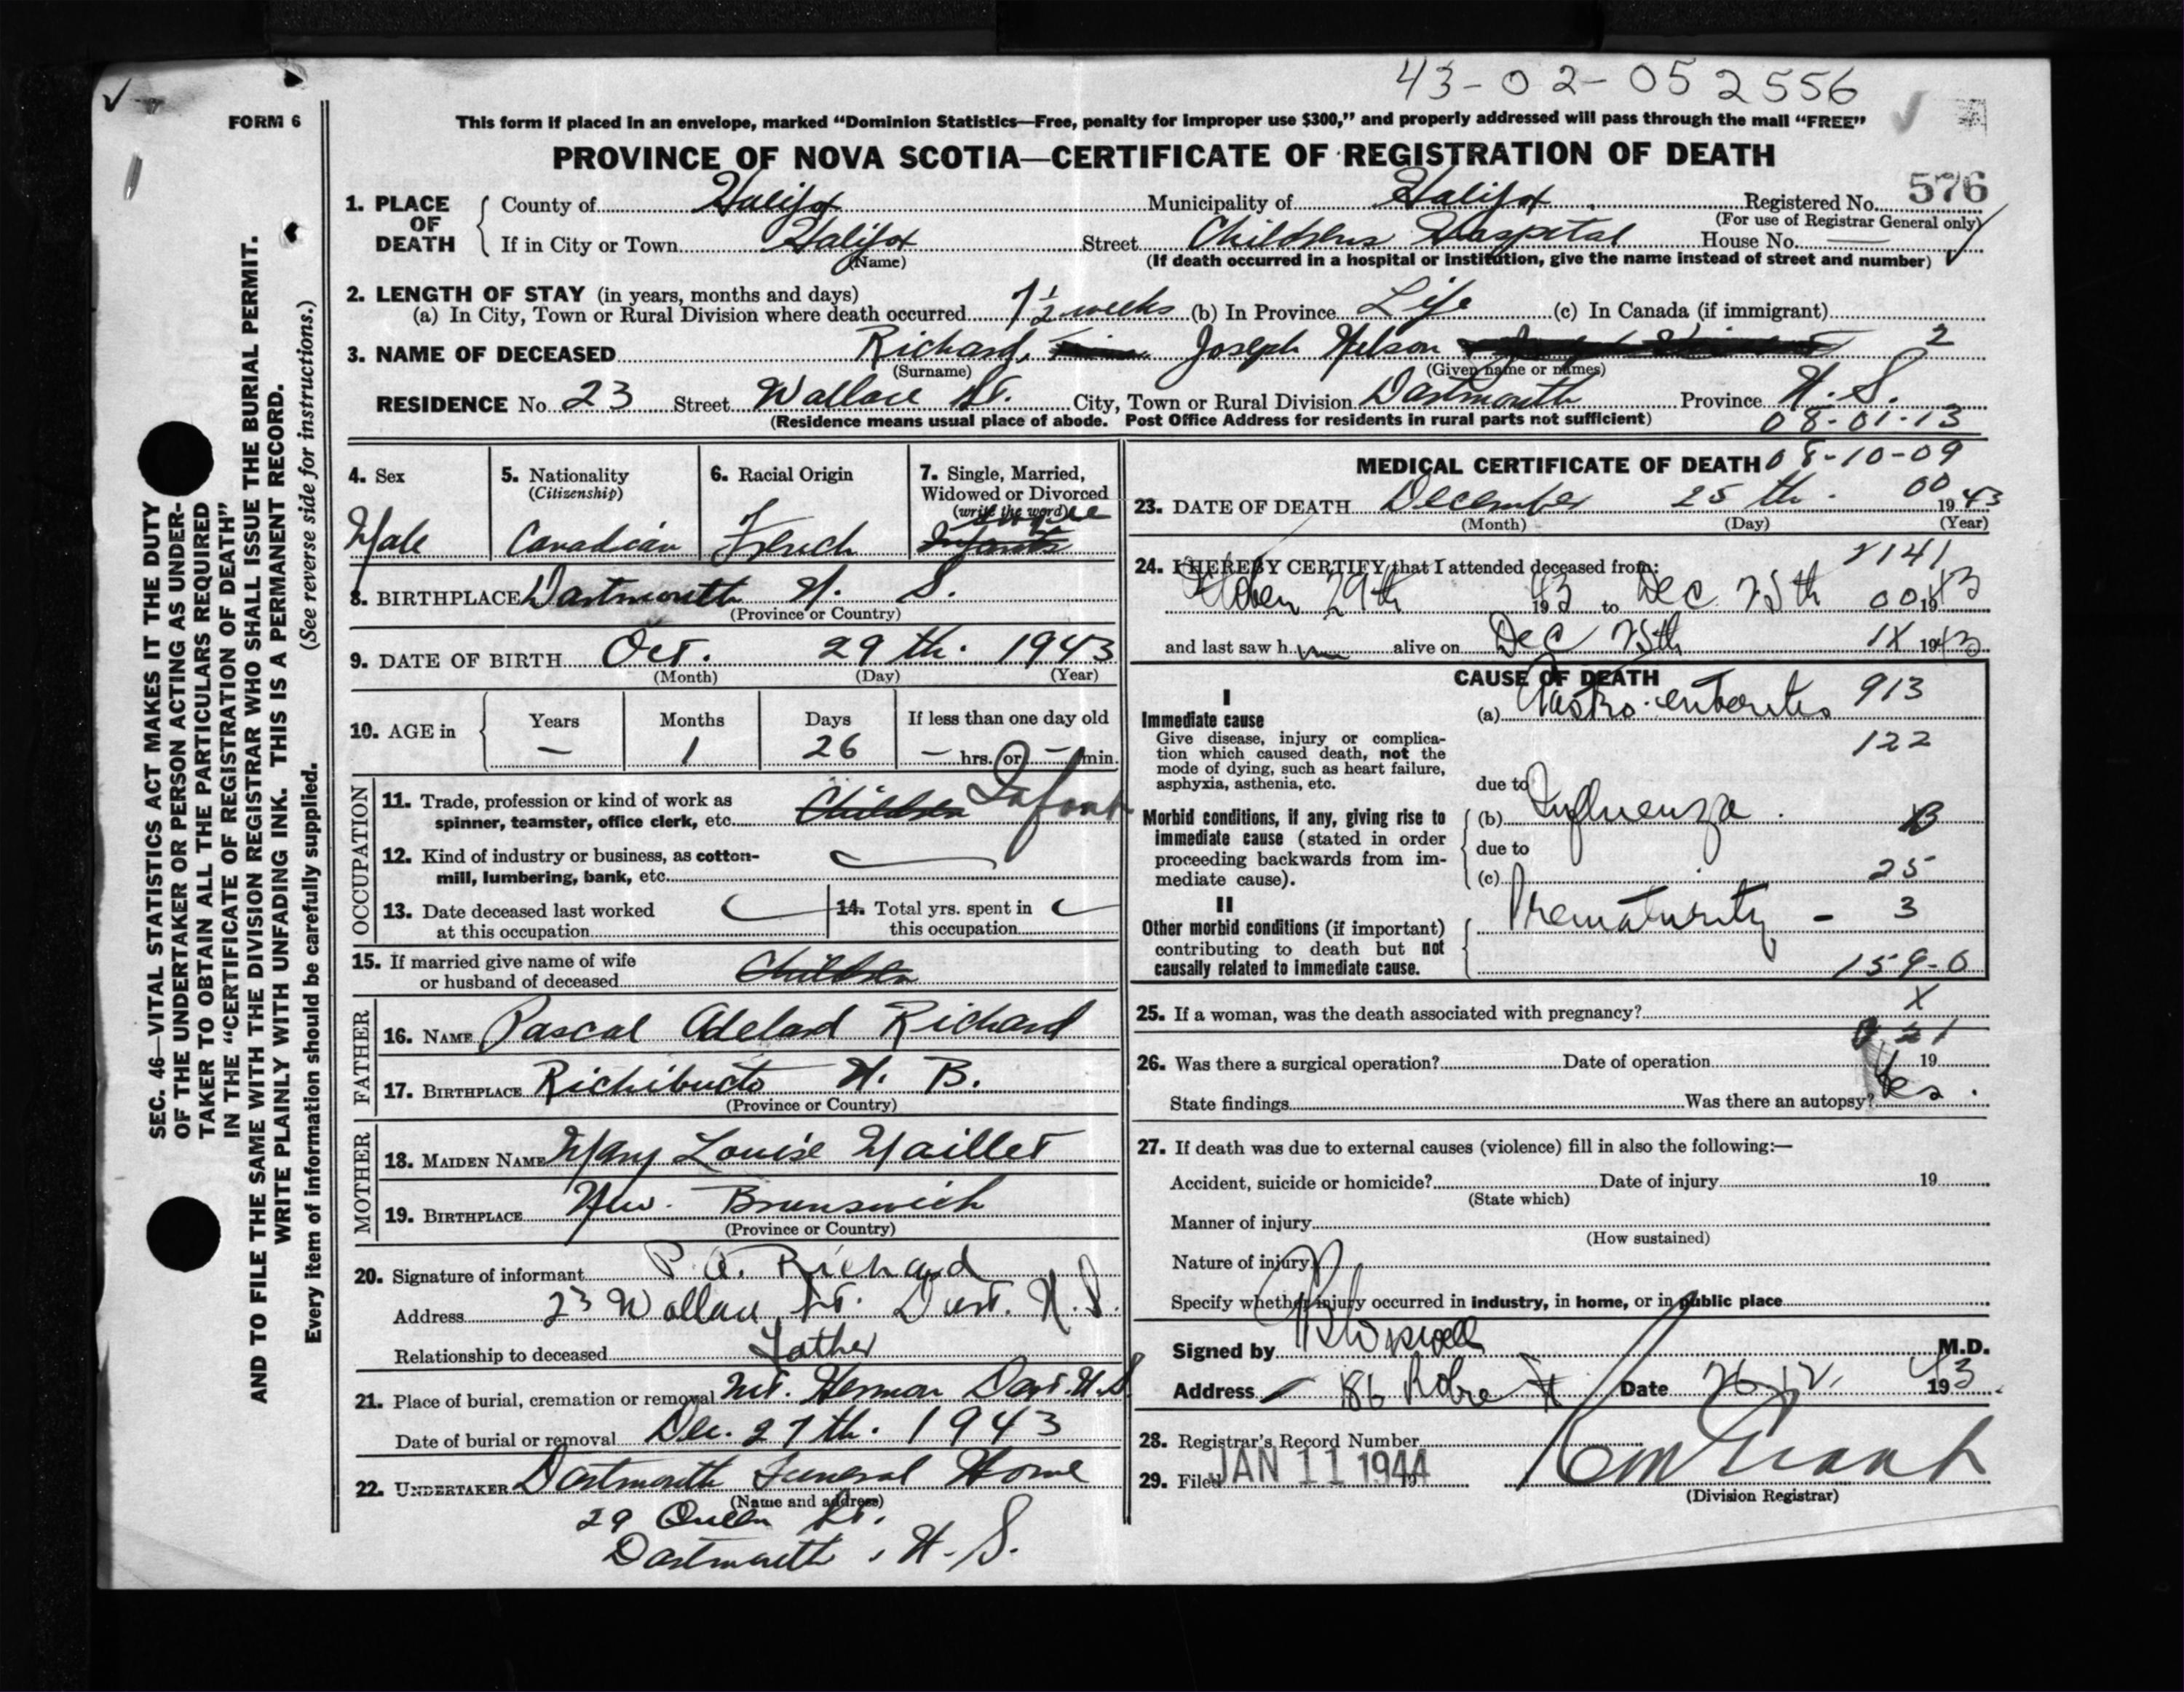 43-02-052556
FORM 6
This form if placed in an envelope, marked "Dominion Statistics—Free, penalty for improper use $300," and properly addressed will pass through the mail "FREE"
PROVINCE OF NOVA SCOTIA—CERTIFICATE OF REGISTRATION OF DEATH
576
1. PLACE OF DEATH
County of Halifax Municipality of Halifax Registered No.
(For use of Registrar General only)
If in City or Town Halifax Street Childrens Hospital House No. —
(Name) (If death occurred in a hospital or institution, give the name instead of street and number)
2. LENGTH OF STAY (in years, months and days)
(a) In City, Town or Rural Division where death occurred 7½ weeks (b) In Province Life (c) In Canada (if immigrant)
3. NAME OF DECEASED Richard, Joseph Nelson 2
(Surname) (Given name or names)
RESIDENCE No. 23 Street Wallace St. City, Town or Rural Division Dartmouth Province N. S.
(Residence means usual place of abode. Post Office Address for residents in rural parts not sufficient) 08-01-13
4. Sex
Male
5. Nationality
(Citizenship)
Canadian
6. Racial Origin
French
7. Single, Married,
Widowed or Divorced
(write the word)
Single
Infant
8. BIRTHPLACE Dartmouth N. S.
(Province or Country)
9. DATE OF BIRTH Oct. 29th. 1943
(Month) (Day) (Year)
10. AGE in
Years Months Days If less than one day old
— 1 26 — hrs. or — min.
OCCUPATION
11. Trade, profession or kind of work as
spinner, teamster, office clerk, etc. Children Infant
12. Kind of industry or business, as cotton-
mill, lumbering, bank, etc.
13. Date deceased last worked
at this occupation
14. Total yrs. spent in
this occupation
15. If married give name of wife
or husband of deceased Children
FATHER
16. NAME Pascal Adelard Richard
17. BIRTHPLACE Richibucto N. B.
(Province or Country)
MOTHER
18. MAIDEN NAME Mary Louise Maillet
19. BIRTHPLACE New Brunswick
(Province or Country)
20. Signature of informant P. A. Richard
Address 23 Wallace St. Dart. N.S.
Relationship to deceased Father
21. Place of burial, cremation or removal Mt. Hermon Dart. N.S.
Date of burial or removal Dec. 27th. 1943
22. UNDERTAKER Dartmouth Funeral Home
(Name and address)
29 Queen St.
Dartmouth, N.S.
MEDICAL CERTIFICATE OF DEATH 08-10-09
23. DATE OF DEATH December 25th. 00 1943
(Month) (Day) (Year)
24. I HEREBY CERTIFY that I attended deceased from: 2141
29th 1943 to Dec 25th 00 1943
and last saw him alive on Dec 25th 1X 1943
CAUSE OF DEATH
I
Immediate cause
Give disease, injury or complica-
tion which caused death, not the
mode of dying, such as heart failure,
asphyxia, asthenia, etc.
(a) Gastro-enteritis 913
122
due to
Morbid conditions, if any, giving rise to
immediate cause (stated in order
proceeding backwards from im-
mediate cause).
(b) Influenza.
due to
(c) 25
II
Other morbid conditions (if important)
contributing to death but not
causally related to immediate cause.
Prematurity - 3
159-0
25. If a woman, was the death associated with pregnancy? X
26. Was there a surgical operation? Date of operation 19
State findings Was there an autopsy? Yes.
27. If death was due to external causes (violence) fill in also the following:—
Accident, suicide or homicide? Date of injury 19
(State which)
Manner of injury
(How sustained)
Nature of injury
Specify whether injury occurred in industry, in home, or in public place
Signed by M.D.
Address 186 Date 1943
28. Registrar's Record Number
29. Filed JAN 11 1944 19
(Division Registrar)
SEC. 46—VITAL STATISTICS ACT MAKES IT THE DUTY
OF THE UNDERTAKER OR PERSON ACTING AS UNDER-
TAKER TO OBTAIN ALL THE PARTICULARS REQUIRED
IN THE "CERTIFICATE OF REGISTRATION OF DEATH"
AND TO FILE THE SAME WITH THE DIVISION REGISTRAR WHO SHALL ISSUE THE BURIAL PERMIT.
WRITE PLAINLY WITH UNFADING INK. THIS IS A PERMANENT RECORD.
Every item of information should be carefully supplied. (See reverse side for instructions.)